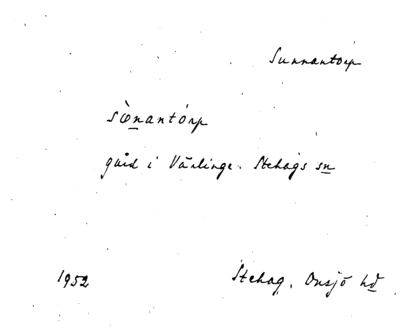 Sunnantorp
sònantórp
gård i Värlinge. Stehags sn
1952
Stehag, Onsjö hd